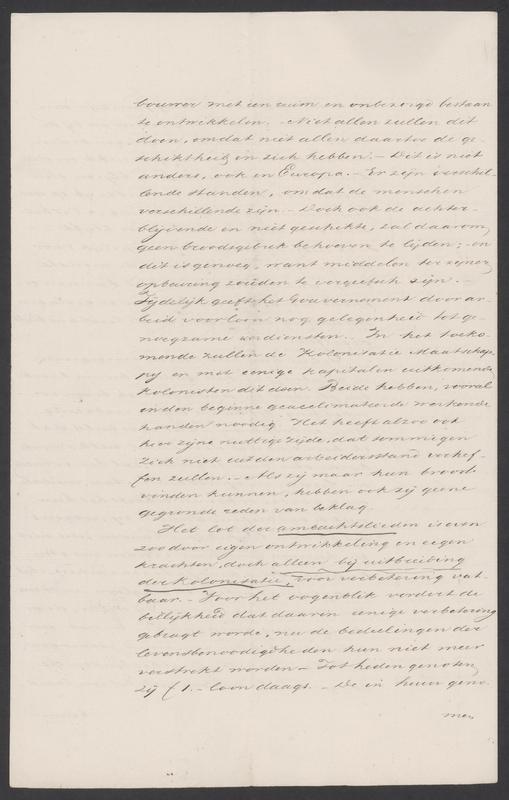 bouwer met een ruim en onbezorgd bestaan
te ontwikkelen. - Niet allen zullen dit
doen, omdat niet allen daartoe de ge-
schiktheid in zich hebben. - Dit is niet
anders, ook in Europa. - Er zijn verschil-
lende standen, omdat de menschen
verschillende zijn. - Doch ook de achter-
blijvende en niet geschikte, zal daarom
geen broodsgebrek behoeven te lijden; en
dit is genoeg, want middelen ter zijner
opbeuring zouden te vergeefsch zijn. -
Tijdelijk geeft het Gouvernement door ar-
beid voor loon nog gelegenheid tot ge-
noegzame verdiensten. In het toeko-
mende zullen de Kolonisatie Maatschap-
py en met eenige kapitalen uitkomende
kolonisten dit doen. Beide hebben, vooral
in den beginne geacclimateerde werkende
handen noodig. Het heeft alzoo ook
hier zijne nuttige zijde, dat sommigen
zich niet uit den arbeidersstand verhef-
fen zullen. - Als zij maar hun brood
vinden kunnen, hebben ook zij geene
gegronde reden van beklag.
Het lot der ambachtslieden is even
zoo door eigen ontwikkeling en eigen
krachten, doch alleen bij uitbreiding
der kolonisatie, voor verbetering vat-
baar. - Voor het oogenblik vordert de
billijkheid dat daarin eenige verbetering
gebragt worde, nu de bedeelingen der
levensbenoodigdheden hun niet meer
verstrekt worden - Tot heden genoten
zij f 1.- loon daags. - De in huur geno-
men